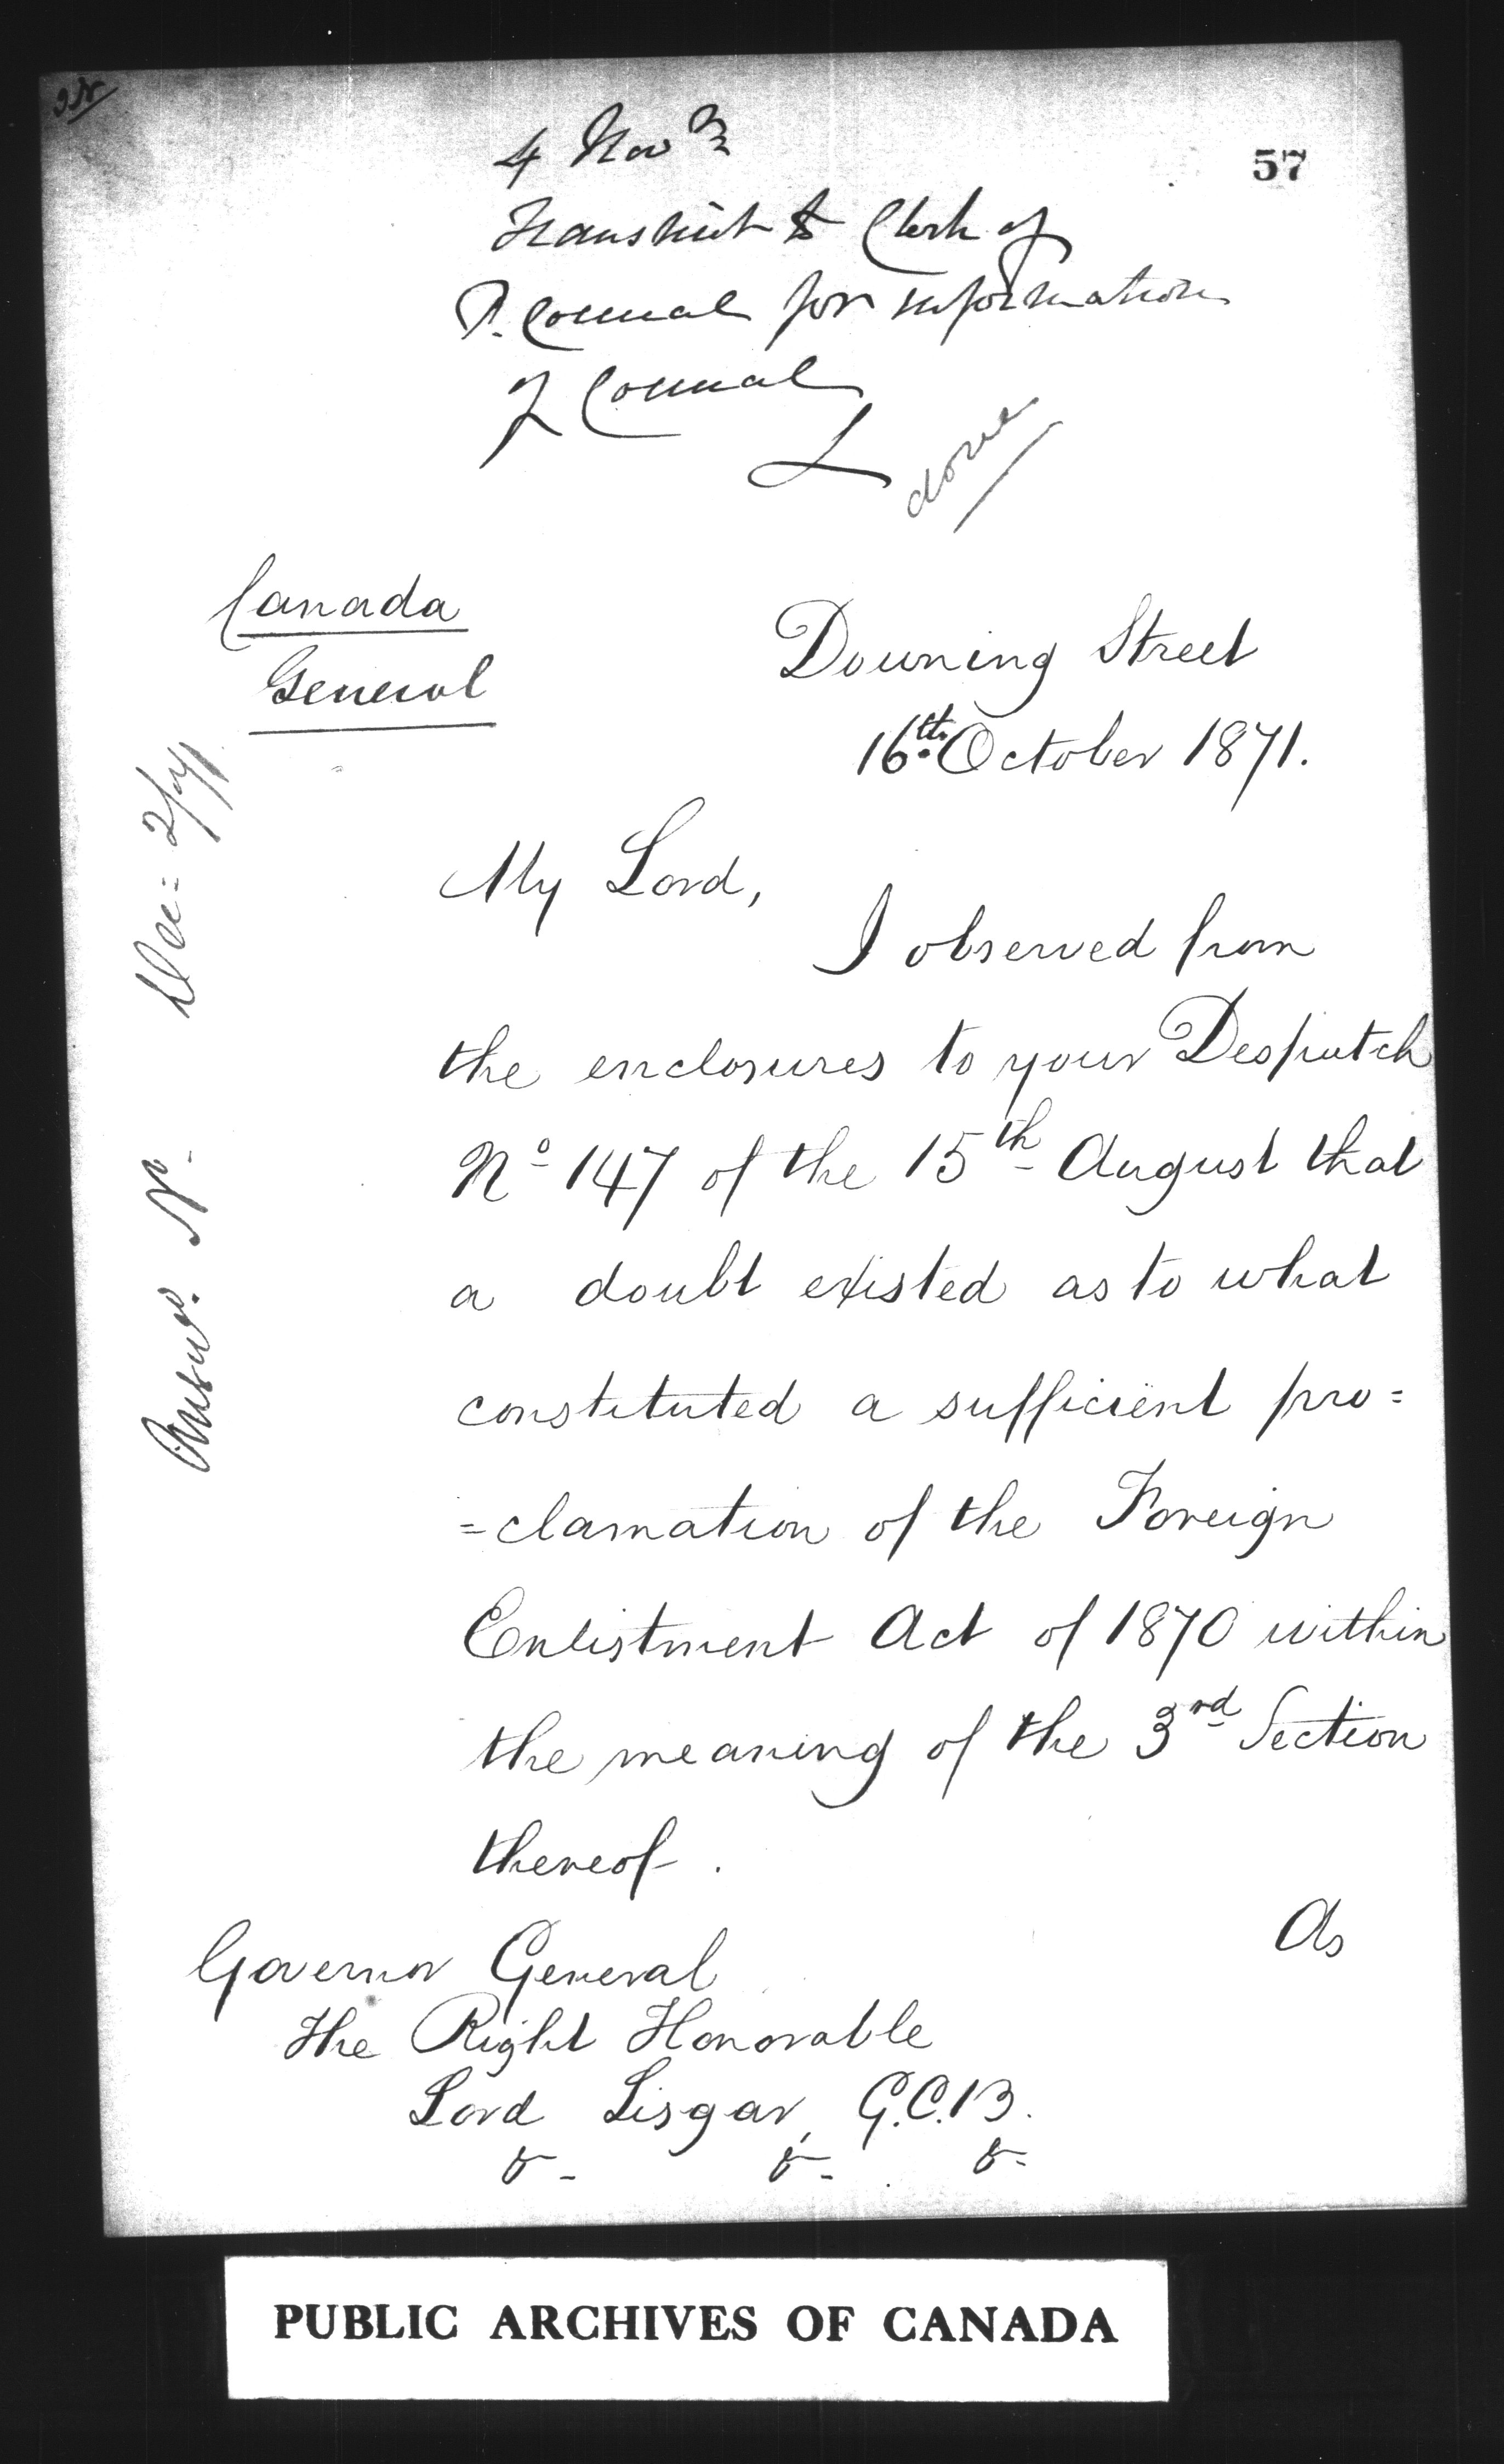 57
4 Nov
Transmit to Clerk of
P. Council for information
of Council
L
done
Canada
General
Downing Street
16th October 1871.
Answd. N.
My Lord,
I observed from
the enclosures to your Despatch
No 147 of the 15th August that
a doubt existed as to what
constituted a sufficient pro=
=clamation of the Foreign
Enlistment Act of 1870 within
the meaning of the 3rd Section
thereof.
As
Governor General
The Right Honorable
Lord Lisgar, G.C.B.
& - & - & -
PUBLIC ARCHIVES OF CANADA